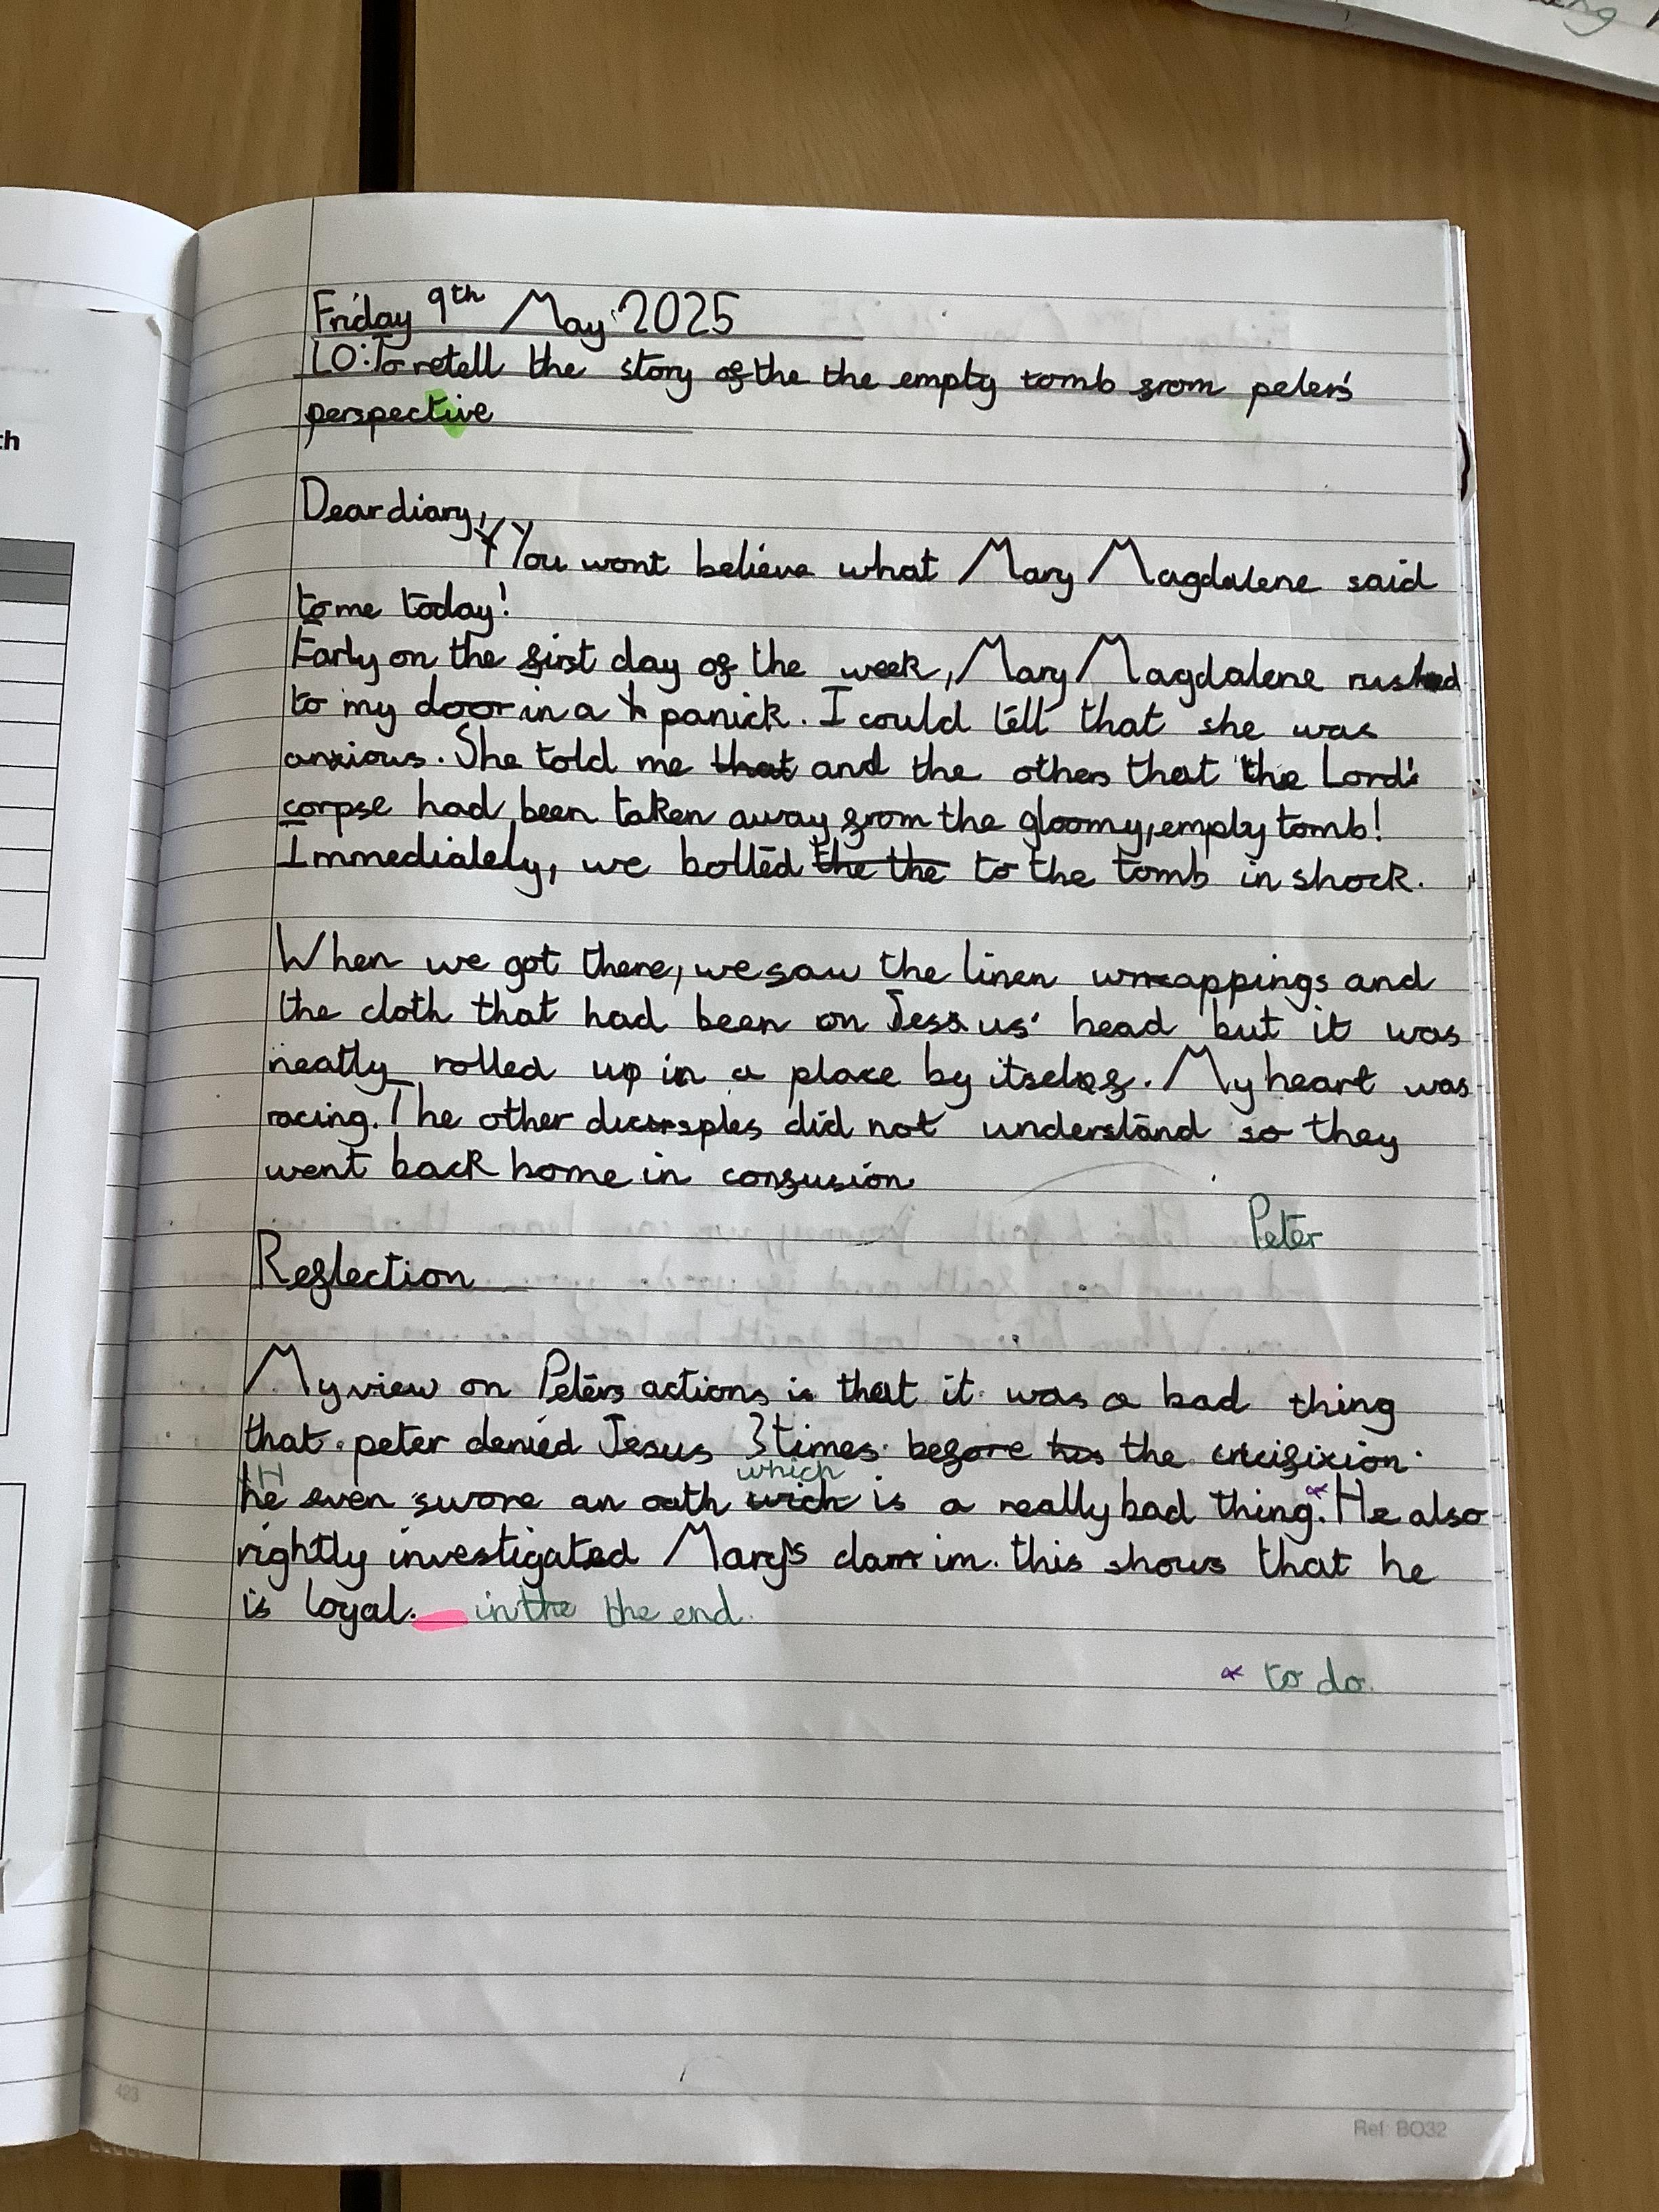 ing
th
Friday 9th May 2025
LO: To retell the story of the the empty tomb from peter's
perspective
Dear diary,
You wont believe what Mary Magdalene said
to me today!
Early on the first day of the week, Mary Magdalene rushed
to my door in a panick. I could tell that she was
anxious. She told me that and the others that the Lord's
corpse had been taken away from the gloomy, empty tomb!
Immediately, we bolted the the to the tomb in shock.
When we got there, we saw the linen wrappings and
the cloth that had been on Jesus' head but it was
neatly rolled up in a place by itself. My heart was
racing. The other did not understand so they
went back home in confusion
Peter
Reflection
My view on Peters actions is that it was a bad thing
that peter denied Jesus 3 times before his the crucifixion.
which
He even swore an oath wich is a really bad thing. * He also
rightly investigated Mary's claim. this shows that he
is loyal. in the the end.
* to do.
423
Ref: BO32